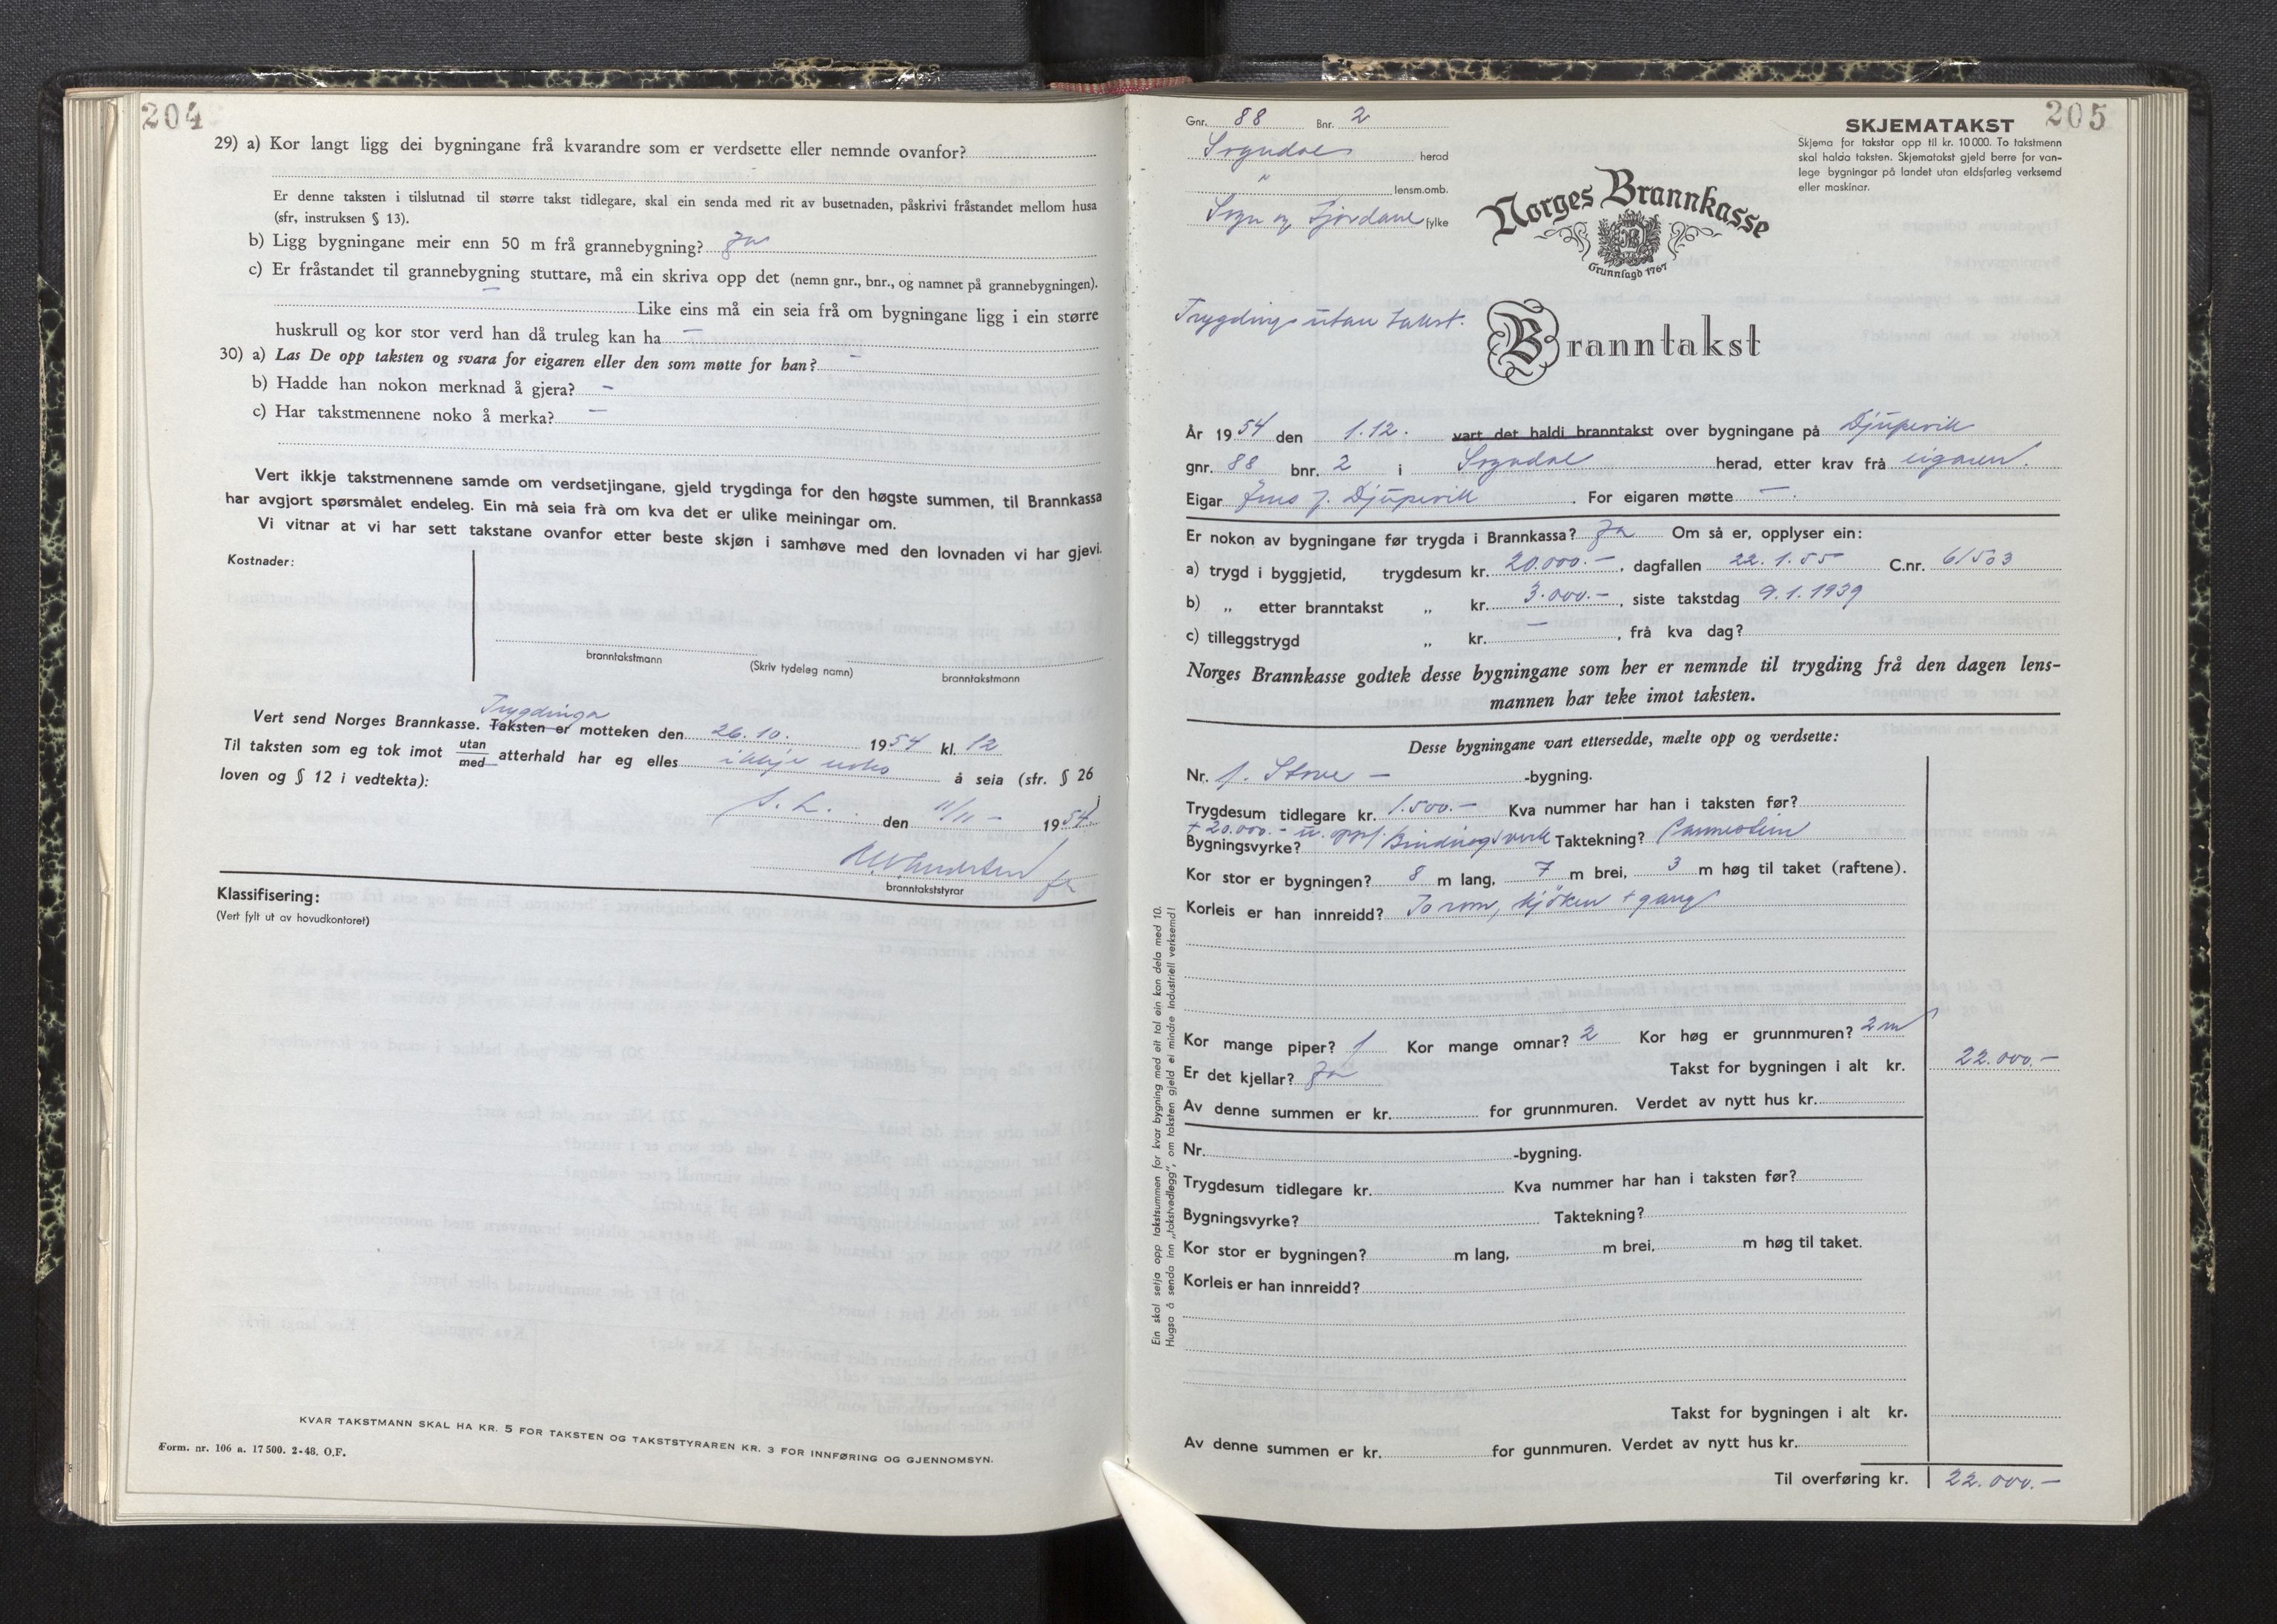 204
29) a) Kor langt ligg dei bygningane frå kvarandre som er verdsette eller nemnde ovanfor?
Er denne taksten i tilslutnad til større takst tidlegare, skal ein senda med rit av busetnaden, påskrivi fråstandet mellom husa
(sfr, instruksen § 13).
b) Ligg bygningane meir enn 50 m frå grannebygning? Ja
c) Er fråstandet til grannebygning stuttare, må ein skriva opp det (nemn gnr., bnr., og namnet på grannebygningen).
— Like eins må ein seia frå om bygningane ligg i ein større
huskrull og kor stor verd han då truleg kan ha —
30) a) Las De opp taksten og svara for eigaren eller den som møtte for han? —
b) Hadde han nokon merknad å gjera? —
c) Har takstmennene noko å merka? —
Vert ikkje takstmennene samde om verdsetjingane, gjeld trygdinga for den høgste summen, til Brannkassa
har avgjort spørsmålet endeleg. Ein må seia frà om kva det er ulike meiningar om.
Vi vitnar at vi har sett takstane ovanfor etter beste skjøn i samhøve med den lovnaden vi har gjevi.
Kostnader:
branntakstmann (Skriv tydeleg namn) branntakstmann
Trygdinga
Vert send Norges Brannkasse. Taksten er motteken den 26.10. 1954 kl. 12
Til taksten som eg tok imot utan/med atterhald har eg elles ikkje noko å seia (sfr. § 26
loven og § 12 i vedtekta):
S. L. den 11/11 — 1954
branntakststyrar
Klassifisering:
(Vert fylt ut av hovudkontoret)
KVAR TAKSTMANN SKAL HA KR. 5 FOR TAKSTEN OG TAKSTSTYRAREN KR. 3 FOR INNFØRING OG GJENNOMSYN.
Form. nr. 106 a. 17 500. 2-48. O.F.
205
Gnr. 88 Bnr. 2
Sogndal herad
" lensm.omb.
Sogn og Fjordane fylke
SKJEMATAKST
Skjema for takstar opp til kr. 10 000. To takstmenn
skal halda taksten. Skjematakst gjeld berre for van-
lege bygningar på landet utan eldsfarleg verksemd
eller maskinar.
Norges Brannkasse
Grunnlagd 1767
Trygding utan takst.
Branntakst
År 1954 den 1.12. vart det haldi branntakst over bygningane på Djupevik
gnr. 88 bnr. 2 i Sogndal herad, etter krav frå eigaren.
Eigar Jens J. Djupevik. For eigaren møtte —.
Er nokon av bygningane før trygda i Brannkassa? Ja Om så er, opplyser ein:
a) trygd i byggjetid, trygdesum kr. 20.000.—, dagfallen 22.1.55 C.nr. 61503
b) „ etter branntakst „ kr. 3.000.—, siste takstdag 9.1.1939
c) tilleggstrygd „ kr. —, frå kva dag?
Norges Brannkasse godtek desse bygningane som her er nemnde til trygding frå den dagen lens-
mannen har teke imot taksten.
Desse bygningane vart ettersedde, mælte opp og verdsette:
Nr. 1. Stove — -bygning.
Trygdesum tidlegare kr. 1.500.— Kva nummer har han i taksten før?
+ 20.000.- u. oppf.
Bygningsvyrke? Bindingsverk Taktekning? Pannestein
Kor stor er bygningen? 8 m lang, 7 m brei, 3 m høg til taket (raftene).
Korleis er han innreidd? To rom, kjöken + gang
Kor mange piper? 1 Kor mange omnar? 2 Kor høg er grunnmuren? 2 m
Er det kjellar? Ja Takst for bygningen i alt kr. 22.000.—
Av denne summen er kr. for grunnmuren. Verdet av nytt hus kr.
Nr. -bygning.
Trygdesum tidlegare kr. Kva nummer har han i taksten før?
Bygningsvyrke? Taktekning?
Kor stor er bygningen? m lang, m brei, m høg til taket.
Korleis er han innreidd?
Takst for bygningen i alt kr.
Av denne summen er kr. for gunnmuren. Verdet av nytt hus kr.
Til overføring kr. 22.000.—
Ein skal setja opp takstsummen for kvar bygning med eit tal ein kan dela med 10.
Hugsa å senda inn „takstvedlegg", om taksten gjeld ei mindre industriell verksemd!